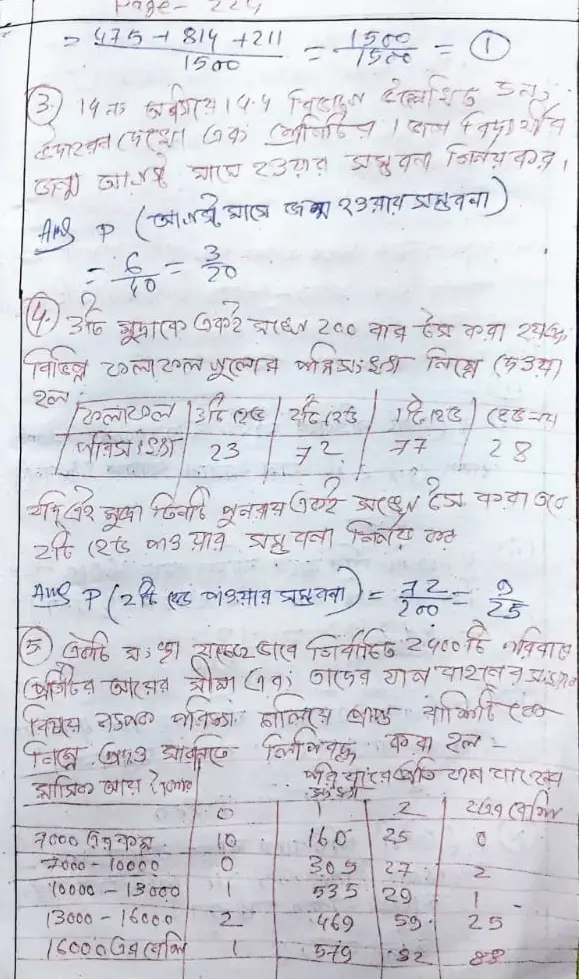 Page - 224
= 475 + 814 + 211 / 1500 = 1500/1500 = 1
3) 14 নং
উদাহরণ দেখো এক শ্রেণিটির
জন্ম আগস্ট মাসে হওয়ার সম্ভবনা নির্নয় কর।
Ans P (আগস্ট মাসে জন্ম হওয়ার সম্ভবনা)
= 6/40 = 3/20
4. 3টি মুদ্রাকে একই সঙ্গে 200 বার টস করা হয়েছে
বিভিন্ন ফলাফল গুলোর পরিসংখ্যা নিম্নে দেওয়া
হল
ফলাফল | 3টি হেড | 2টি হেড | 1টি হেড | হেড নয়
পরিসংখ্যা | 23 | 72 | 77 | 28
যদি এই মুদ্রা তিনটি পুনরায় একই সঙ্গে টস করা হবে
2টি হেড পাওয়ার সম্ভবনা নির্নয় কর
Ans P (2টি হেড পাওয়ার সম্ভবনা) = 72/200 = 9/25
5) একটি সংস্থা ভাবে নির্বাচিত 2400টি পরিবারে
প্রতিটির আয়ের সীমা এবং তাদের যান বাহনের
বিষয়ে চালিয়ে প্রাপ্ত
নিম্নে প্রদত্ত সারনিতে লিপিবদ্ধ করা হল -
মাসিক আয় | পরিবারের প্রতি যান বাহনের
সংখ্যা
0 | 1 | 2 | 2 এর বেশি
7000 এর কম | 10 | 160 | 25 | 0
7000 - 10000 | 0 | 305 | 27 | 2
10000 - 13000 | 1 | 535 | 29 | 1
13000 - 16000 | 2 | 469 | 59 | 25
16000 এর বেশি | 1 | 579 | 82 | 88